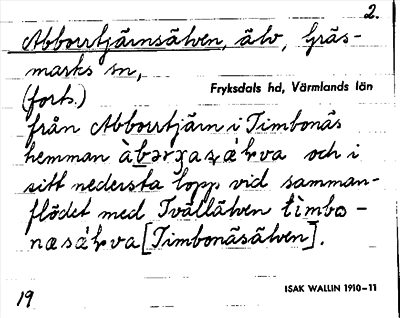 2.
Abborrtjärnsälven, älv, Gräs-
marks sn,
Fryksdals hd, Värmlands län
(forts.)
från Abborrtjärn i Timbonäs
hemman och i
sitt nedersta lopp vid samman-
flödet med Tvällälven tìmbo-
[Timbonäsälven].
19
ISAK WALLIN 1910-11